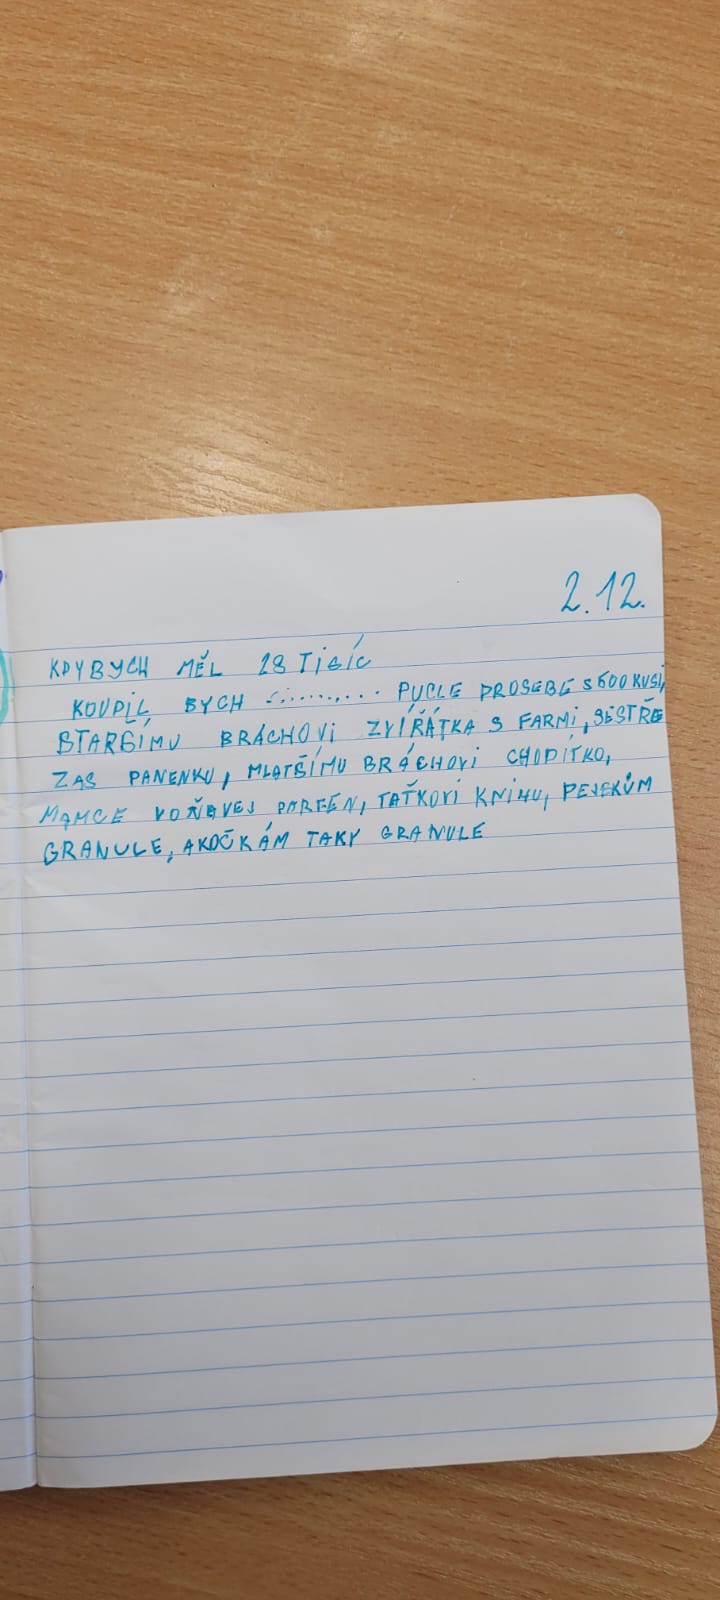 2.12.
KDYBYCH MĚL 28 TiSÍC
KOUPIL BYCH ............ PUCLE PROSEBE S 600 KUSI,
STARŠÍMU BRÁCHOVI ZVÍŘÁTKA S FARMI, SESTŘE
ZAS PANENKU, MLATŠÍMU BRÁCHOVI CHODÍTKO,
MAMCE VOŇAVEJ PARFÉN, TAŤKOVI KNIHU, PEJSKŮM
GRANULE, AKOČKÁM TAKY GRANULE